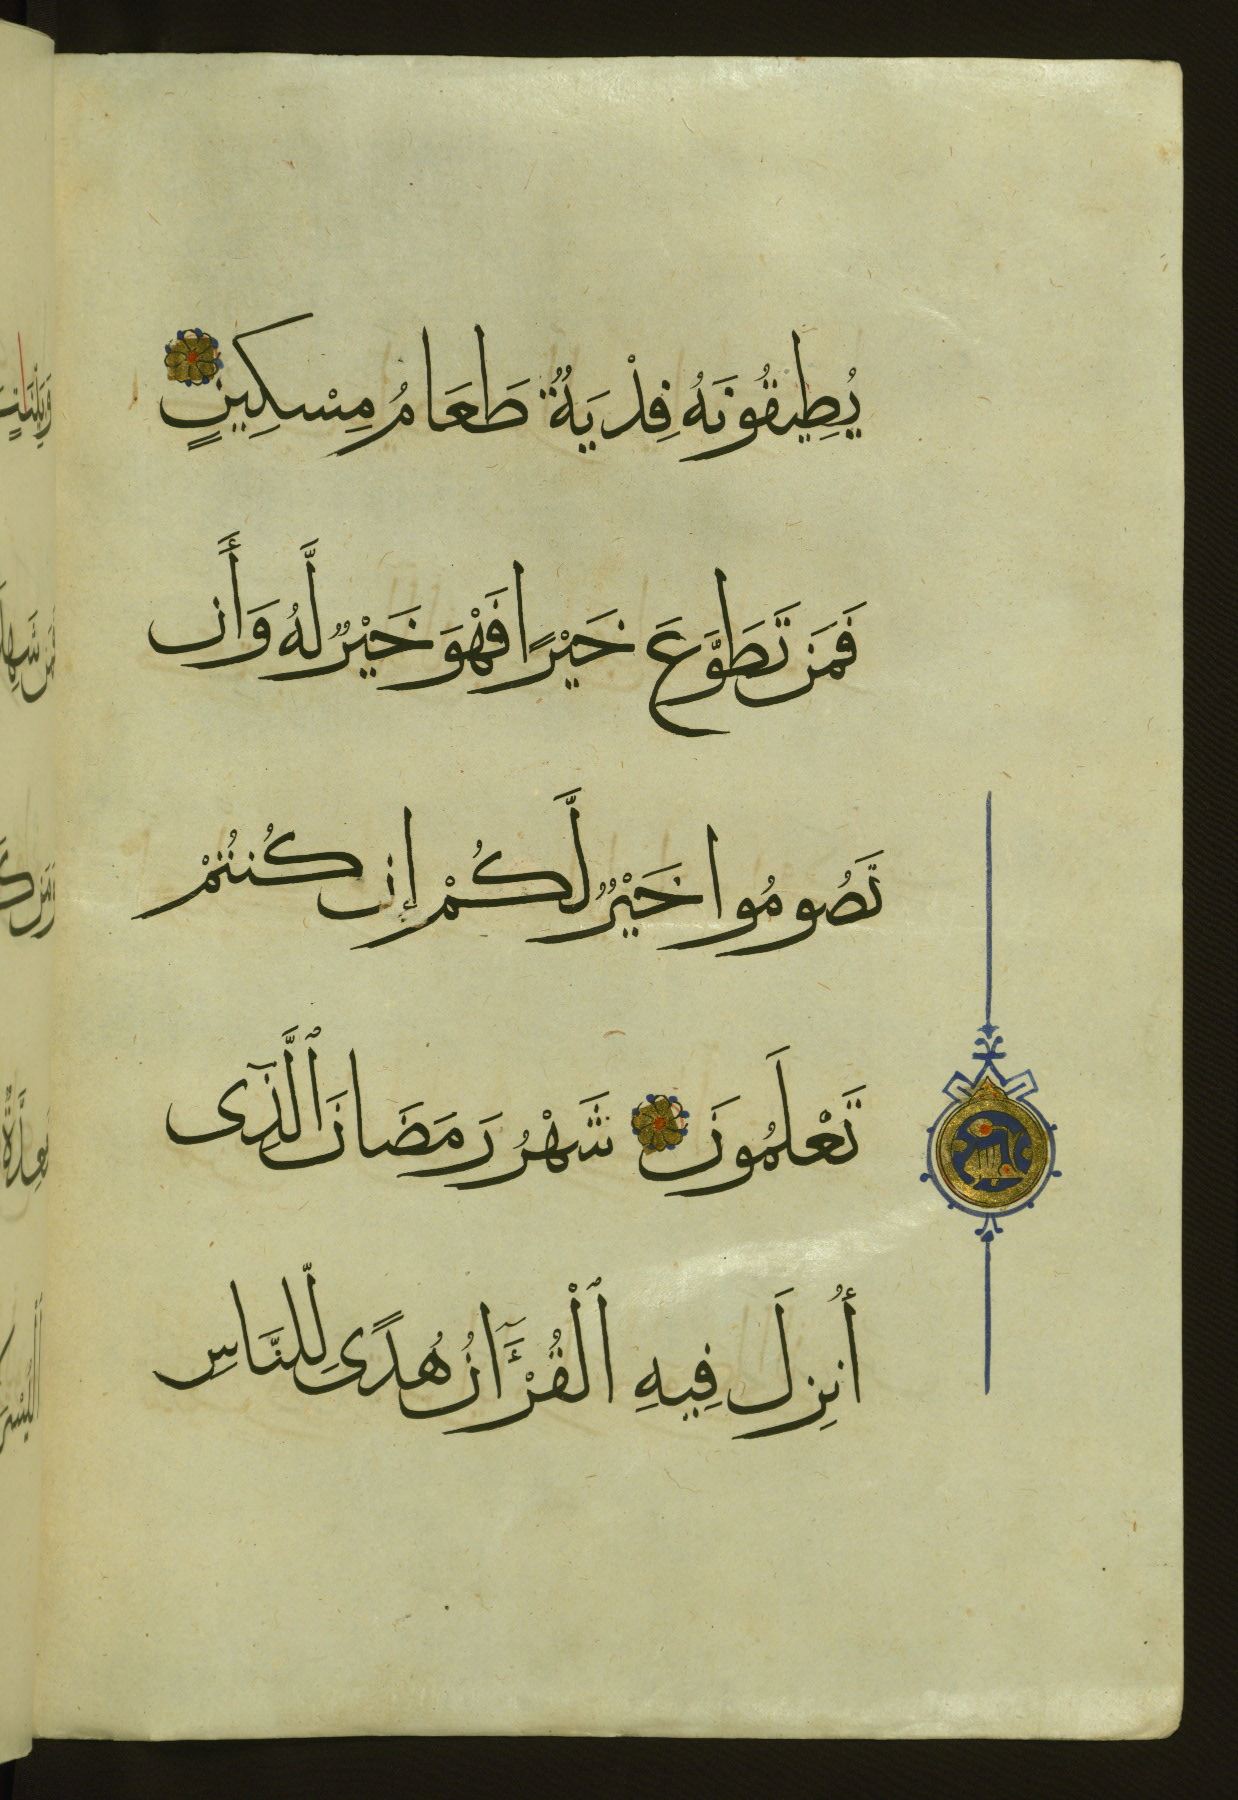 يُطِيقُونَهُ فِدْيَةٌ طَعَامُ مِسْكِينٍ
فَمَن تَطَوَّعَ خَيْرًا فَهْوَ خَيْرٌ لَّهُ وَأَن
تَصُومُوا خَيْرٌ لَّكُمْ إِن كُنتُمْ
تَعْلَمُونَ شَهْرُ رَمَضَانَ ٱلَّذِى
أُنزِلَ فِيهِ ٱلْقُرْءَانُ هُدًى لِّلنَّاسِ